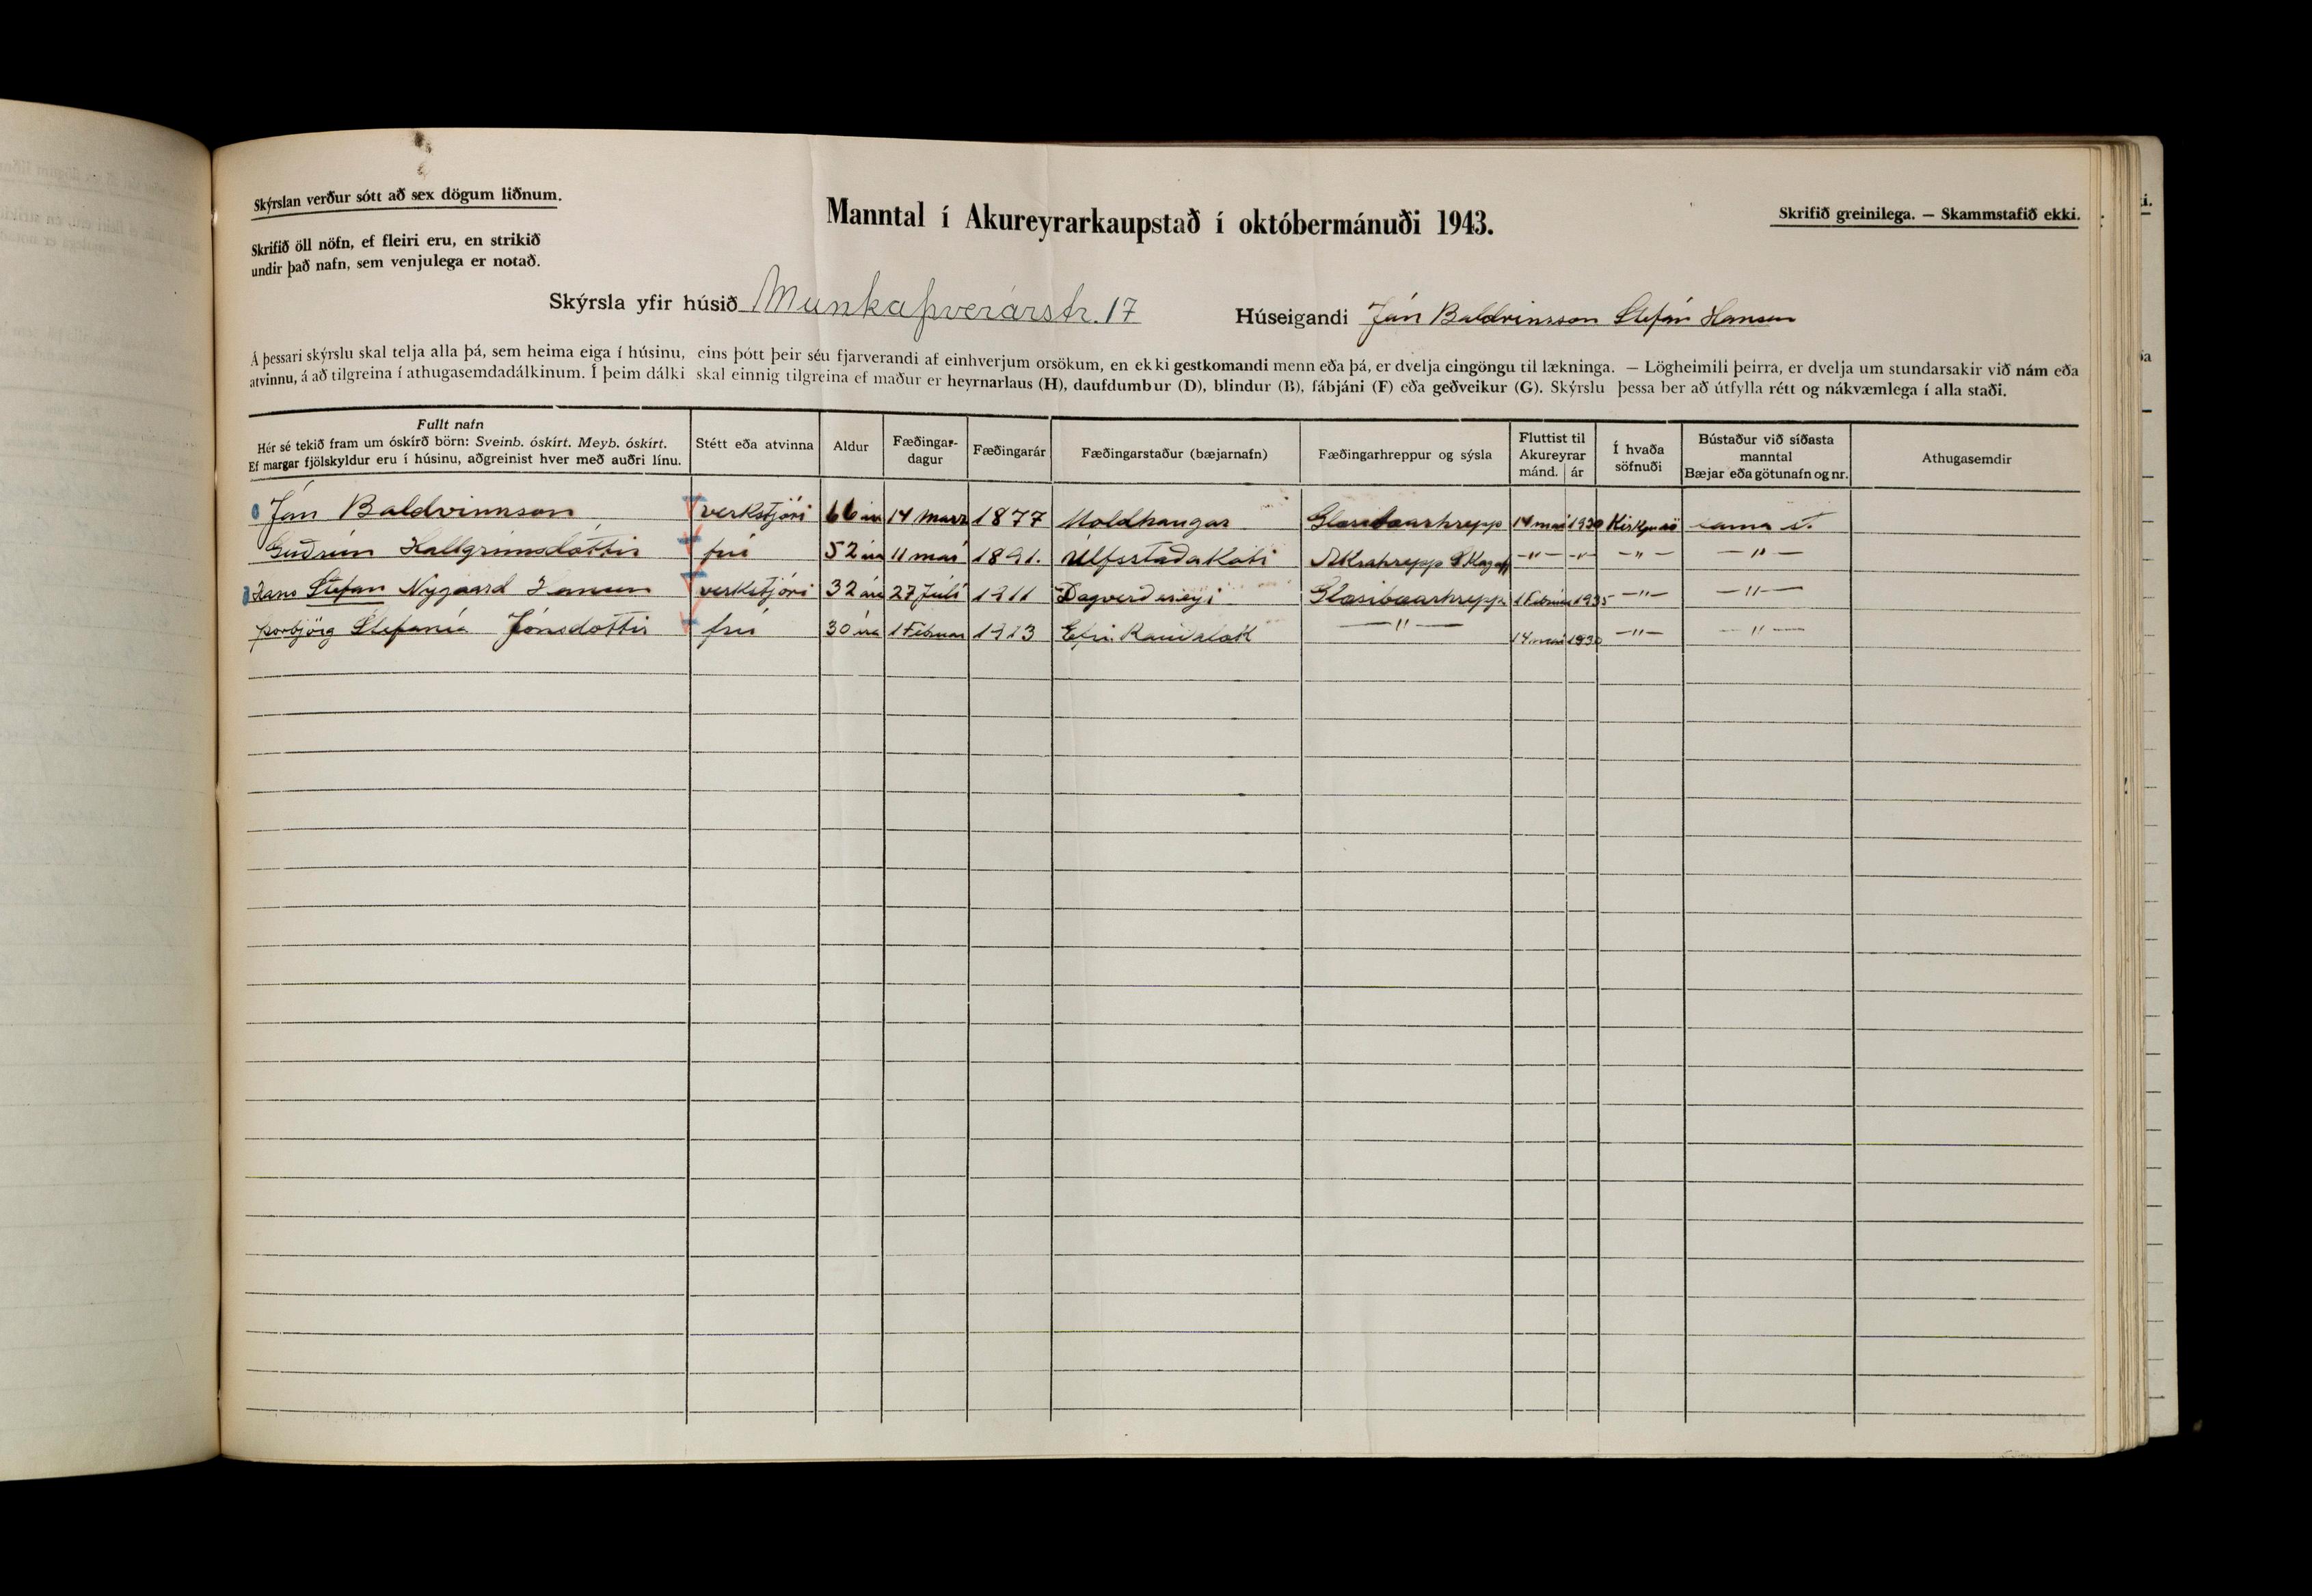 Skýrslan verður sótt að sex dögum liðnum.
Manntal í Akureyrarkaupstað í októbermánuði 1943.
Skrifið greinilega. — Skammstafið ekki.
Skrifið öll nöfn, ef fleiri eru, en strikið
undir það nafn, sem venjulega er notað.
Skýrsla yfir húsið Munkaþverárstr. 17 Húseigandi Jón Baldvinsson Stefán Hansen
Á þessari skýrslu skal telja alla þá, sem heima eiga í húsinu, eins þótt þeir séu fjarverandi af einhverjum orsökum, en ekki gestkomandi menn eða þá, er dvelja eingöngu til lækninga. — Lögheimili þeirra, er dvelja um stundarsakir við nám eða
atvinnu, á að tilgreina í athugasemdadálkinum. Í þeim dálki skal einnig tilgreina ef maður er heyrnarlaus (H), daufdumbur (D), blindur (B), fábjáni (F) eða geðveikur (G). Skýrslu þessa ber að útfylla rétt og nákvæmlega í alla staði.
Fullt nafn
Hér sé tekið fram um óskírð börn: Sveinb. óskírt. Meyb. óskírt.
Ef margar fjölskyldur eru í húsinu, aðgreinist hver með auðri línu.
Stétt eða atvinna
Aldur
Fæðingar-
dagur
Fæðingarár
Fæðingarstaður (bæjarnafn)
Fæðingarhreppur og sýsla
Fluttist til
Akureyrar
mánd. ár
Í hvaða
söfnuði
Bústaður við síðasta
manntal
Bæjar eða götunafn og nr.
Athugasemdir
Jón Baldvinnson verkstjóri 66 ára 14 mars 1877 Moldhaugar Glæsibæarhrepp 14 mai 1930 sama st.
Guðrún Hallgrímsdóttir frú 52 ára 11 mai 1891. Úlfsstaðakoti Akrahrepp Skagaff —"— —"— —"— —"—
Hans Stefan Nygaard Hansen verkstjóri 32 ára 27 Júlí 1911 Dagverðareyri Glæsibæarhrepp 1 Febrúar 1935 —"— —"—
Þorbjörg Stefanía Jónsdóttir frú 30 ára 1 Februar 1913 Efri Rauðalæk —"— 14 mai 1930 —"— —"—